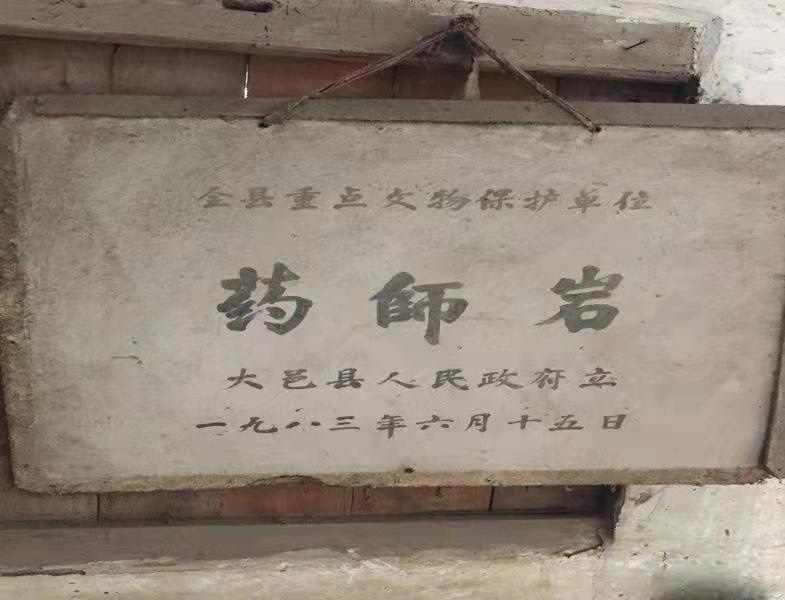 全县重点文物保护单位
药師岩
大邑县人民政府立
一九八三年六月十五日